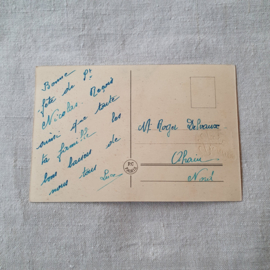 Bonne
fête de St
Nicolas. Reçois
ainsi que toute
ta famille les
bons baisers de
nous tous
Mr Roger Delvaux
Nord